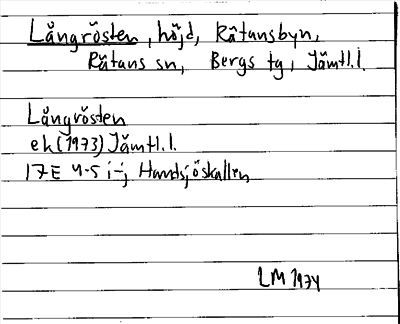 Långrösten, höjd, Råtansbyn,
Råtans sn, Bergs tg, Jämtl.l.
Långrösten
ek (1973) Jämtl.l.
17E 4-5 i-j Handsjöskallen
LM 1974